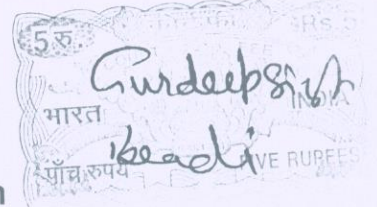 5 रु. Rs. 5
Gurdeep Singh
भारत INDIA
पाँच रुपये FIVE RUPEES